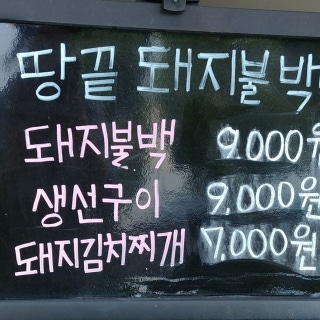 땅끝 돼지불백
돼지불백 9.000원
생선구이 9.000원
돼지김치찌개 7.000원